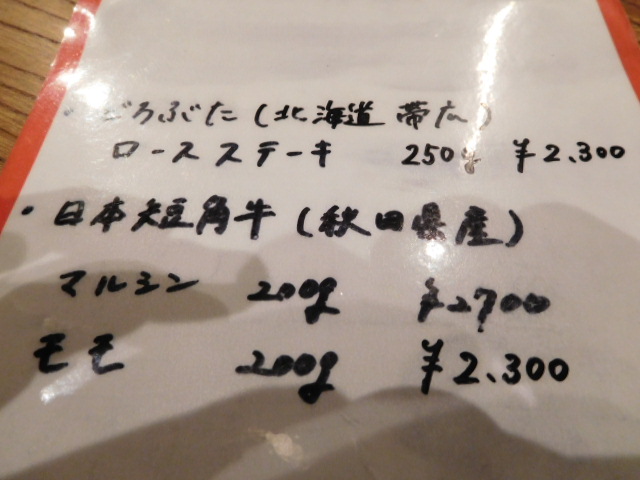 ・どろぶた(北海道 帯広)
ロースステーキ 250g ¥2.300
・日本短角牛(秋田県産)
マルシン 200g ¥2700
モモ 200g ¥2.300